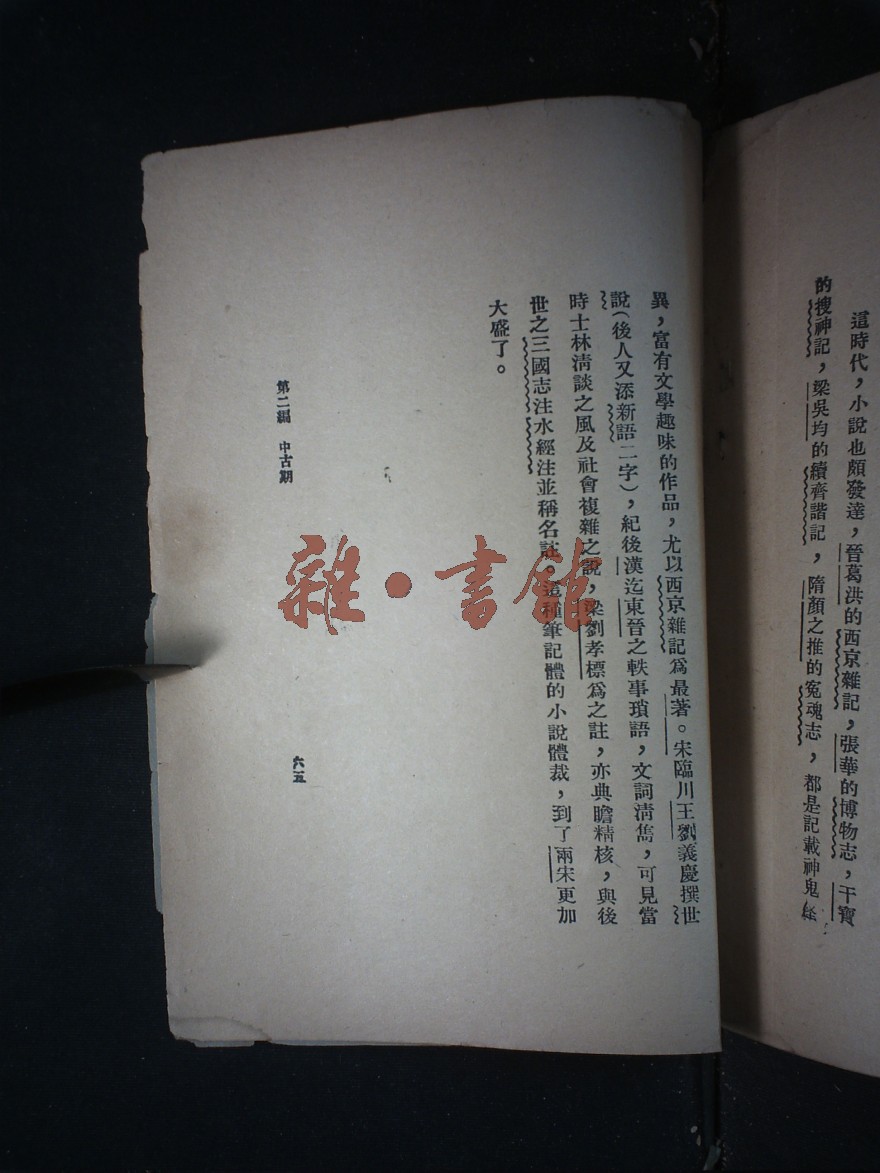 這時代，小說也頗發達，晉葛洪的西京雜記，張華的博物志，干寶
的搜神記，梁吳均的續齊諧記，隋顏之推的寃魂志，都是記載神鬼
異，富有文學趣味的作品，尤以西京雜記爲最著。宋臨川王劉義慶撰世
說（後人又添新語二字），紀後漢迄東晉之軼事瑣語，文詞淸雋，可見當
時士林淸談之風及社會複雜之說，梁劉孝標爲之註，亦典瞻精核，與後
世之三國志注水經注並稱名註。這種筆記體的小說體裁，到了兩宋更加
大盛了。
第二編 中古期
六五
雜·書館